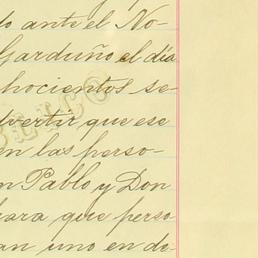 do ante el No-
Garduño el día
hocientos se-
dvertir que ese
en las perso-
n Pablo y Don
para que perso
an uno en de-